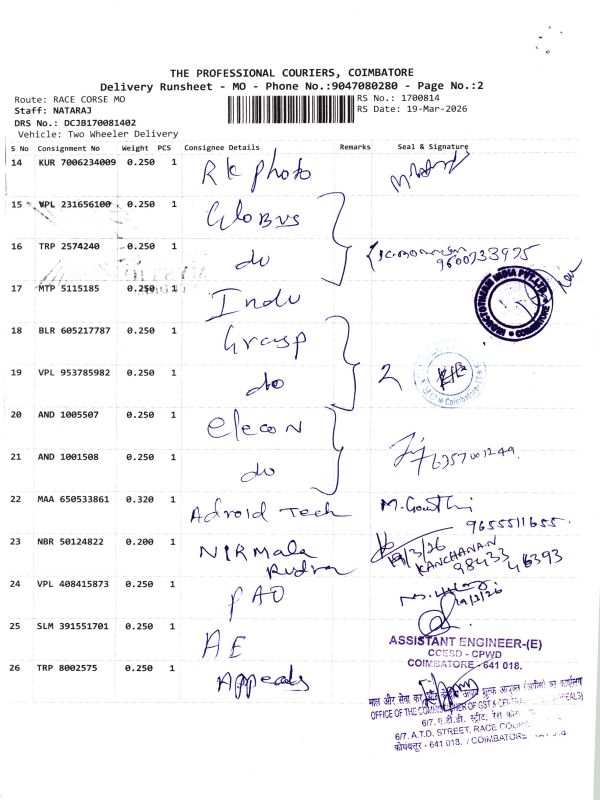 THE PROFESSIONAL COURIERS, COIMBATORE
Delivery Runsheet - MO - Phone No.:9047080280 - Page No.:2
Route: RACE CORSE MO
RS No.: 1700814
Staff: NATARAJ
RS Date: 19-Mar-2026
DRS No.: DCJB170081402
Vehicle: Two Wheeler Delivery
S No Consignment No Weight PCS Consignee Details Remarks Seal & Signature
14 KUR 7006234009 0.250 1 RK photo
15 VPL 231656100 0.250 1 Globus
16 TRP 2574240 0.250 1 do 9600733975
17 MTP 5115185 0.250 1 Indu
INDIA PVT.LTD. COIMBATORE
18 BLR 605217787 0.250 1 Grasp
19 VPL 953785982 0.250 1 do 2
Coimbatore-18
20 AND 1005507 0.250 1 elecon
21 AND 1001508 0.250 1 do 6357001249.
22 MAA 650533861 0.320 1 Adroid Tech M. Gowthi
9655511655.
23 NBR 50124822 0.200 1 NIRMala Rudra 19/3/26
KANCHANAN
98433 46393
24 VPL 408415873 0.250 1 PAO
19/3/26
25 SLM 391551701 0.250 1 AE
ASSISTANT ENGINEER-(E)
CCESD - CPWD
COIMBATORE - 641 018.
26 TRP 8002575 0.250 1 Appeals
माल और सेवा कर
OFFICE OF THE COMMISSIONER OF GST &
6/7, ए.टी.डी. स्ट्रीट, रेस
6/7, A.T.D. STREET, RACE
कोयंबत्तूर - 641 018. / COIMBATORE